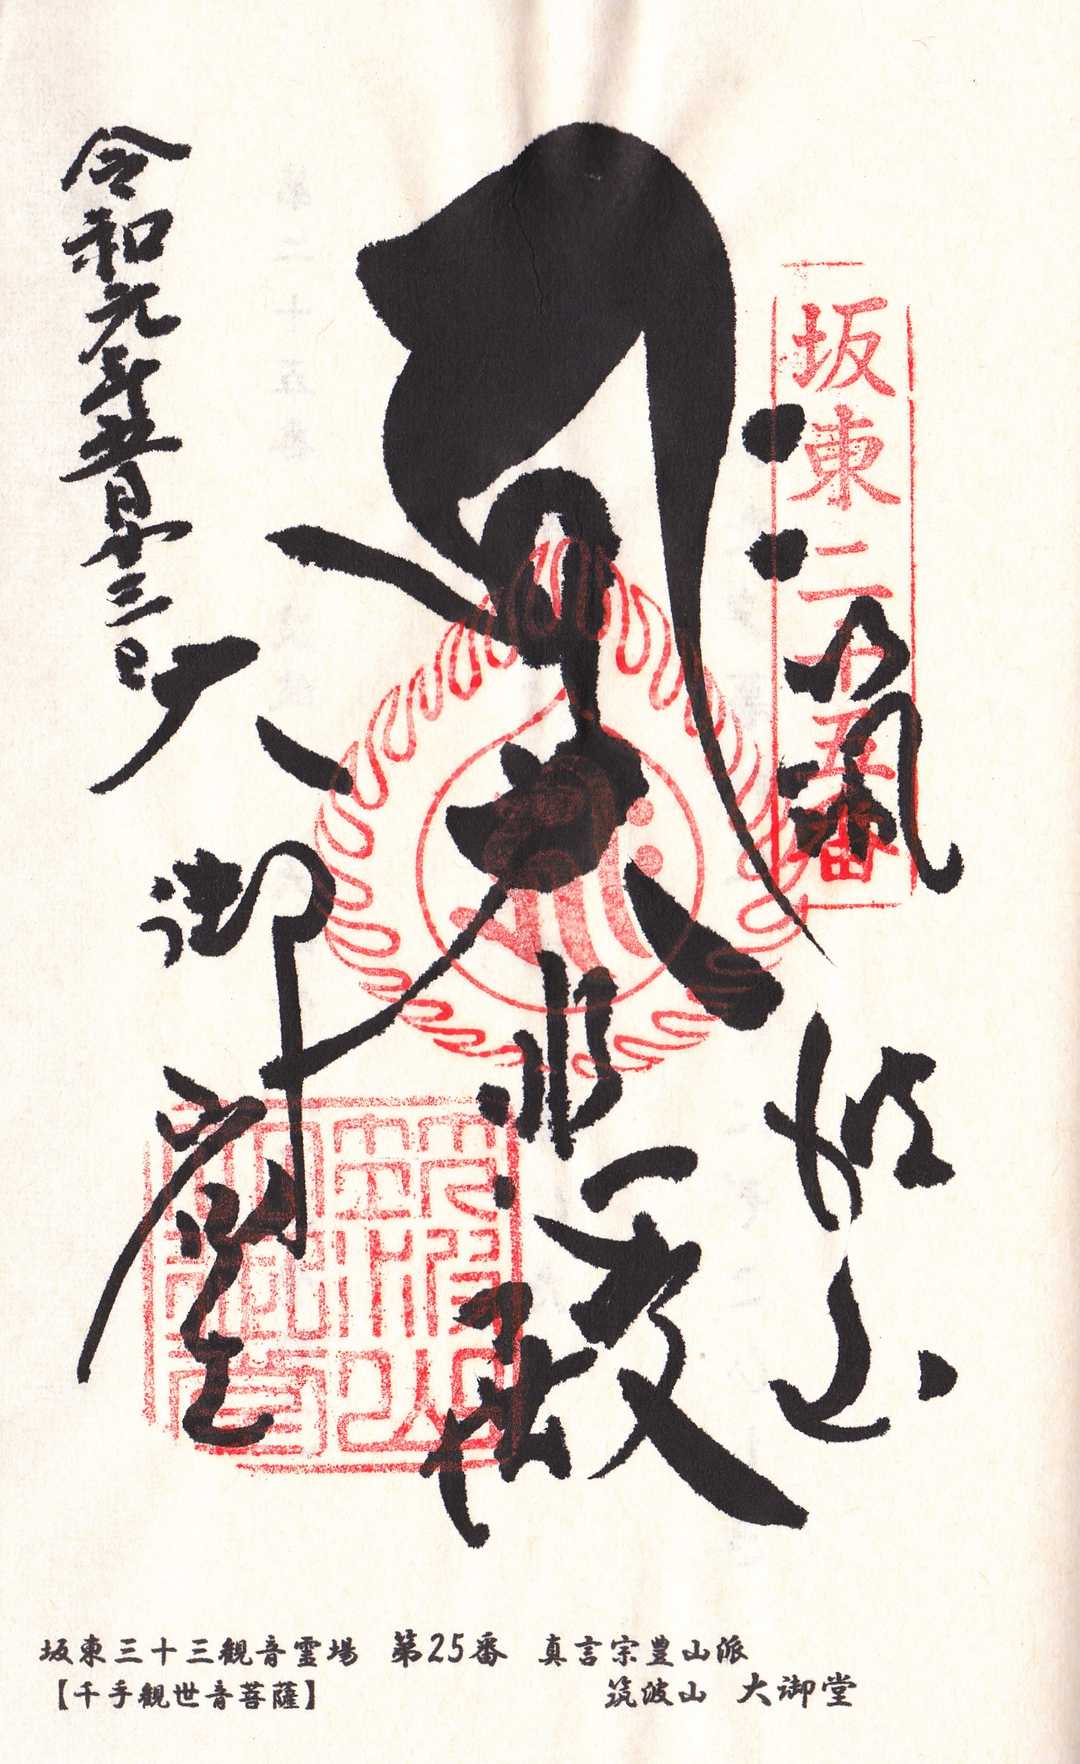 坂東二十五番
筑波山
大悲殿
令和元年五月十三日
大御堂
坂東三十三観音霊場 第25番 真言宗豊山派
【千手観世音菩薩】 筑波山 大御堂